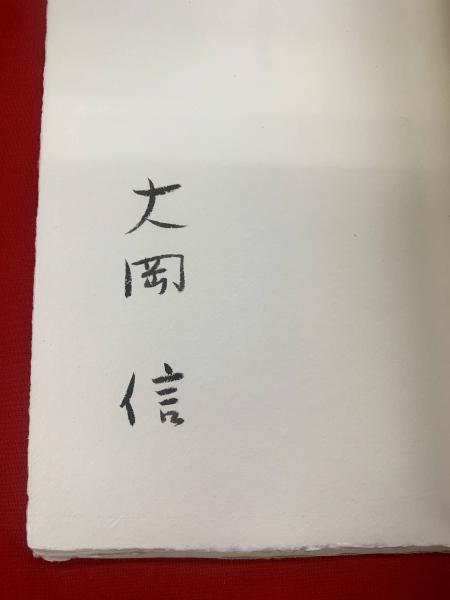 大岡 信